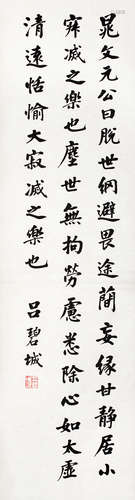 晁文元公曰脱世網避畏途蕳妄緣甘静居小
寂滅之樂也塵世無拘勞慮悉除心如太虛
清遠恬愉大寂滅之樂也
吕碧城